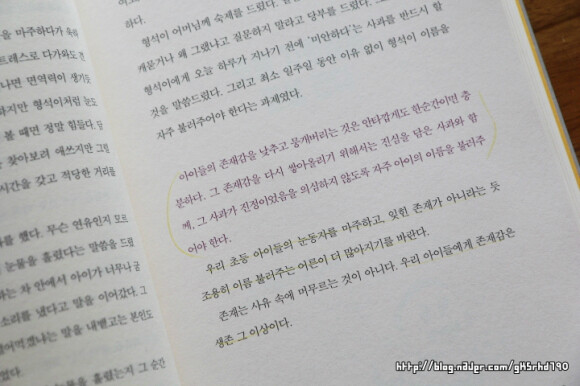 을 마주하다가
트레스로 다가와도 견
나면 면역력이 생기
하지만 형석이처럼 눈도
볼 때면 정말 힘들다. 답
찾아보려 애쓰지만 그럴
시간을 갖고 적당한 거리를
를 했다. 무슨 연유인지 모르
눈물을 흘렸다는 말씀을 드렸
하는 차 안에서 아이가 너무나
소리를 냈다고 말을 이어갔다. 그
말을 내뱉고는 본인도
눈물을 흘렸는지 그 순간
하다.
형석이 어머님께 숙제를 드렸다.
캐묻거나 왜 그랬냐고 질문하지 말라고 당부를 드렸다. 그리고
형석이에게 오늘 하루가 지나기 전에 '미안하다'는 사과를 반드시 할
것을 말씀드렸다. 그리고 최소 일주일 동안 이유 없이 형석이 이름을
자주 불러주어야 한다는 과제였다.
아이들의 존재감을 낮추고 뭉개버리는 것은 안타깝게도 한순간이면 충
분하다. 그 존재감을 다시 쌓아올리기 위해서는 진심을 담은 사과와 함
께, 그 사과가 진정이었음을 의심하지 않도록 자주 아이의 이름을 불러주
어야 한다.
우리 초등 아이들의 눈동자를 마주하고, 잊힌 존재가 아니라는 듯
조용히 이름 불러주는 어른이 더 많아지기를 바란다.
존재는 사유 속에 머무르는 것이 아니다. 우리 아이들에게 존재감은
생존 그 이상이다.
http://blog.naver.com/gksrhd790